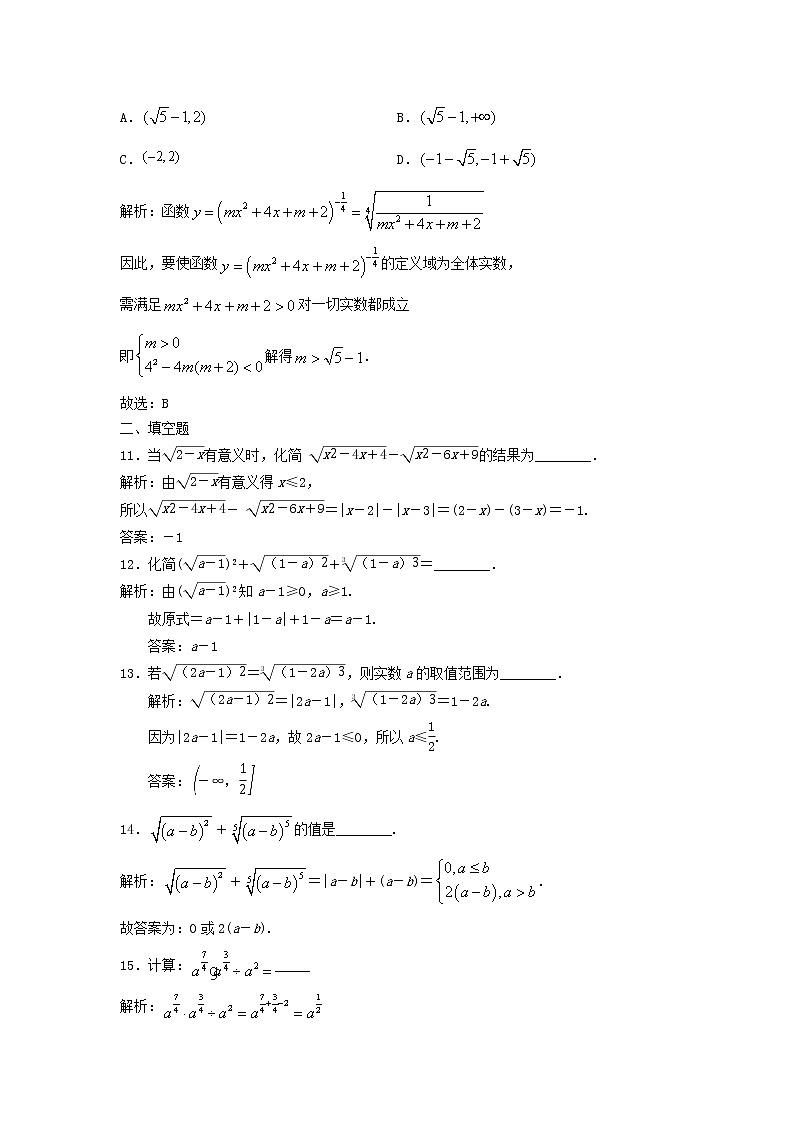 A. (√5−1,2)    B. (√5−1,+∞)
C. (−2,2)    D. (−1−√5,−1+√5)
解析:函数 y=(mx²+4x+m+2)^{-1/4}=∜(1/(mx²+4x+m+2))
因此,要使函数 y=(mx²+4x+m+2)^{-1/4} 的定义域为全体实数,
需满足 mx²+4x+m+2>0 对一切实数都成立
即{m>0
4²−4m(m+2)<0 解得 m>√5−1.
故选:B
二、填空题
11.当√(2-x)有意义时,化简 √(x2-4x+4)-√(x2-6x+9)的结果为________.
解析:由√(2-x)有意义得 x≤2,
所以√(x2-4x+4)- √(x2-6x+9)=|x-2|-|x-3|=(2-x)-(3-x)=-1.
答案:-1
12.化简(√(a-1))²+√((1-a)2)+∛((1-a)3)=________.
解析:由(√(a-1))²知 a-1≥0,a≥1.
故原式=a-1+|1-a|+1-a=a-1.
答案:a-1
13.若√((2a-1)2)=∛((1-2a)3),则实数 a 的取值范围为________.
解析:√((2a-1)2)=|2a-1|,∛((1-2a)3)=1-2a.
因为|2a-1|=1-2a,故 2a-1≤0,所以 a≤1/2.
答案:(-∞,1/2]
14. √((a−b)²) + ⁵√((a−b)⁵) 的值是________.
解析: √((a−b)²) + ⁵√((a−b)⁵) =|a-b|+(a-b)={0,a≤b
2(a−b),a>b.
故答案为:0 或 2(a-b).
15.计算: a^{7/4}ga^{3/4}÷a²=_____
解析: a^{7/4}·a^{3/4}÷a²=a^{7/4+3/4−2}=a^{1/2}